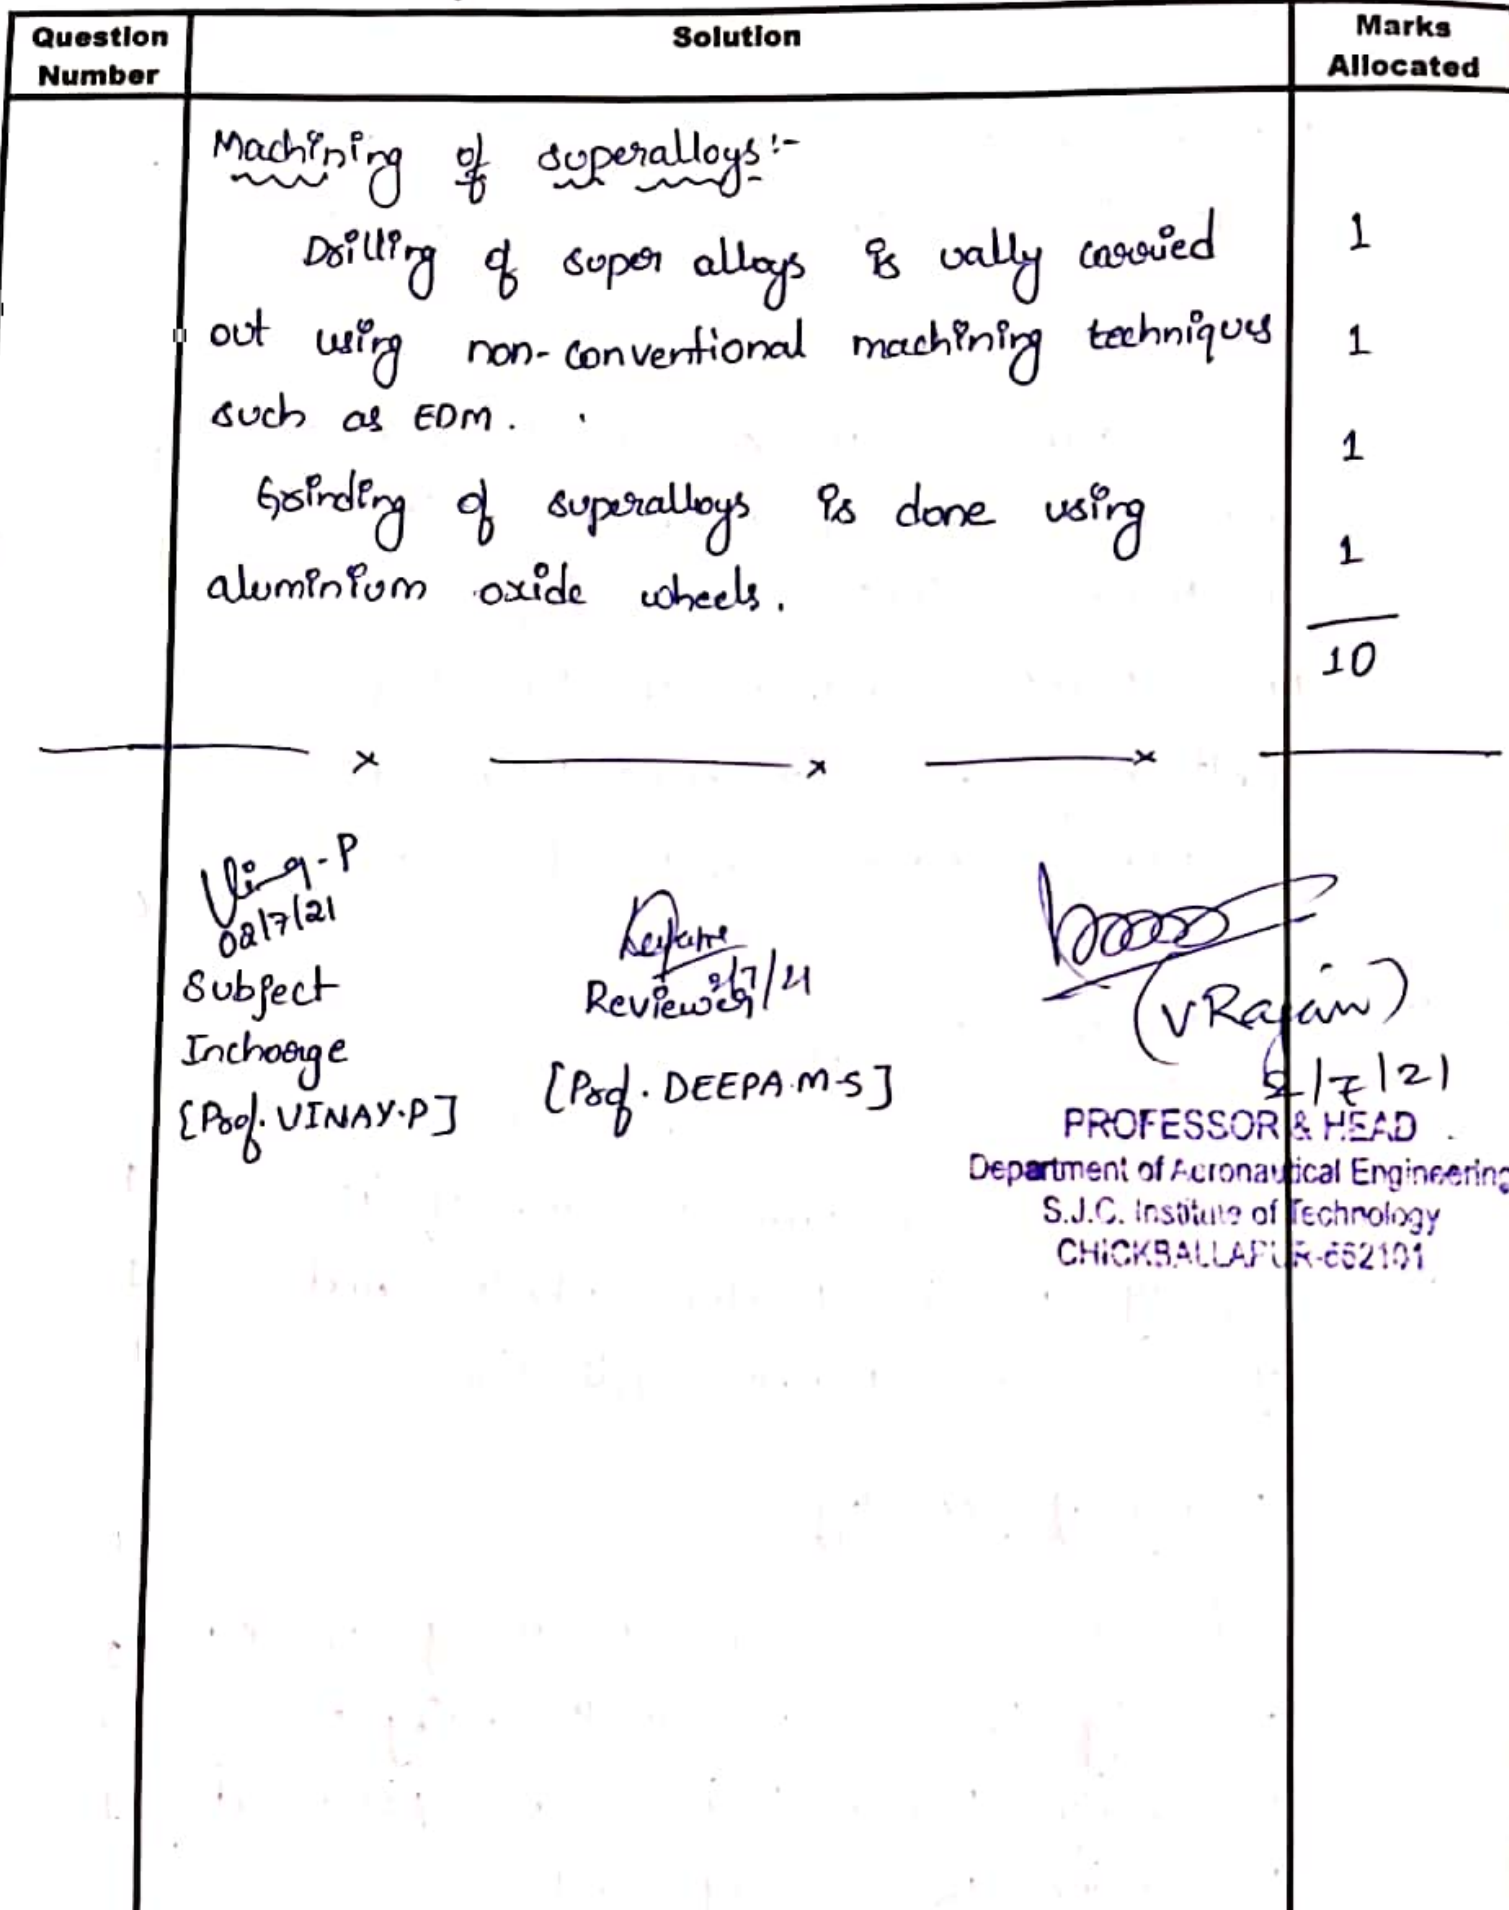 Question Number
Solution
Marks Allocated
Machining of superalloys:-
Drilling of super alloys is ually carried
1
out using non-conventional machining techniques
1
such as EDM.
1
Grinding of superalloys is done using
1
aluminium oxide wheels.
10
x x x
-P
02/7/21
Subject
Incharge
[Prof. VINAY.P]
2/7/21
Reviewer
[Prof. DEEPA.M.S]
(V Rajain)
2/7/21
PROFESSOR & HEAD
Department of Aeronautical Engineering
S.J.C. Institute of Technology
CHICKBALLAPUR-562101